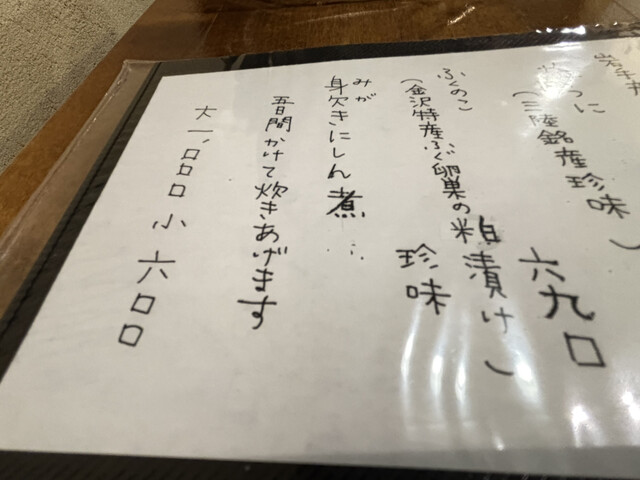 岩手
うに
（三陸銘産珍味）
六九〇
ふくのこ
（金沢特産ふぐ卵巣の粕漬け）
珍味
みが
身欠きにしん煮
五日間かけて炊きあげます
大 一、〇〇〇 小 六〇〇